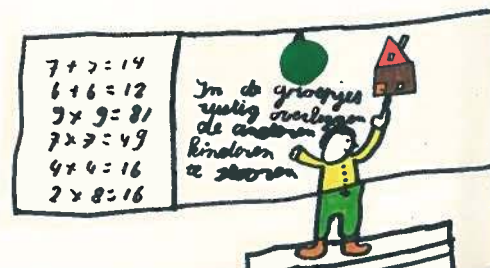 7 + 7 = 14
6 + 6 = 12
9 x 9 = 81
7 x 7 = 49
4 x 4 = 16
2 x 8 = 16
In de groepjes
rustig overleggen
de anderen
kinderen
te storen